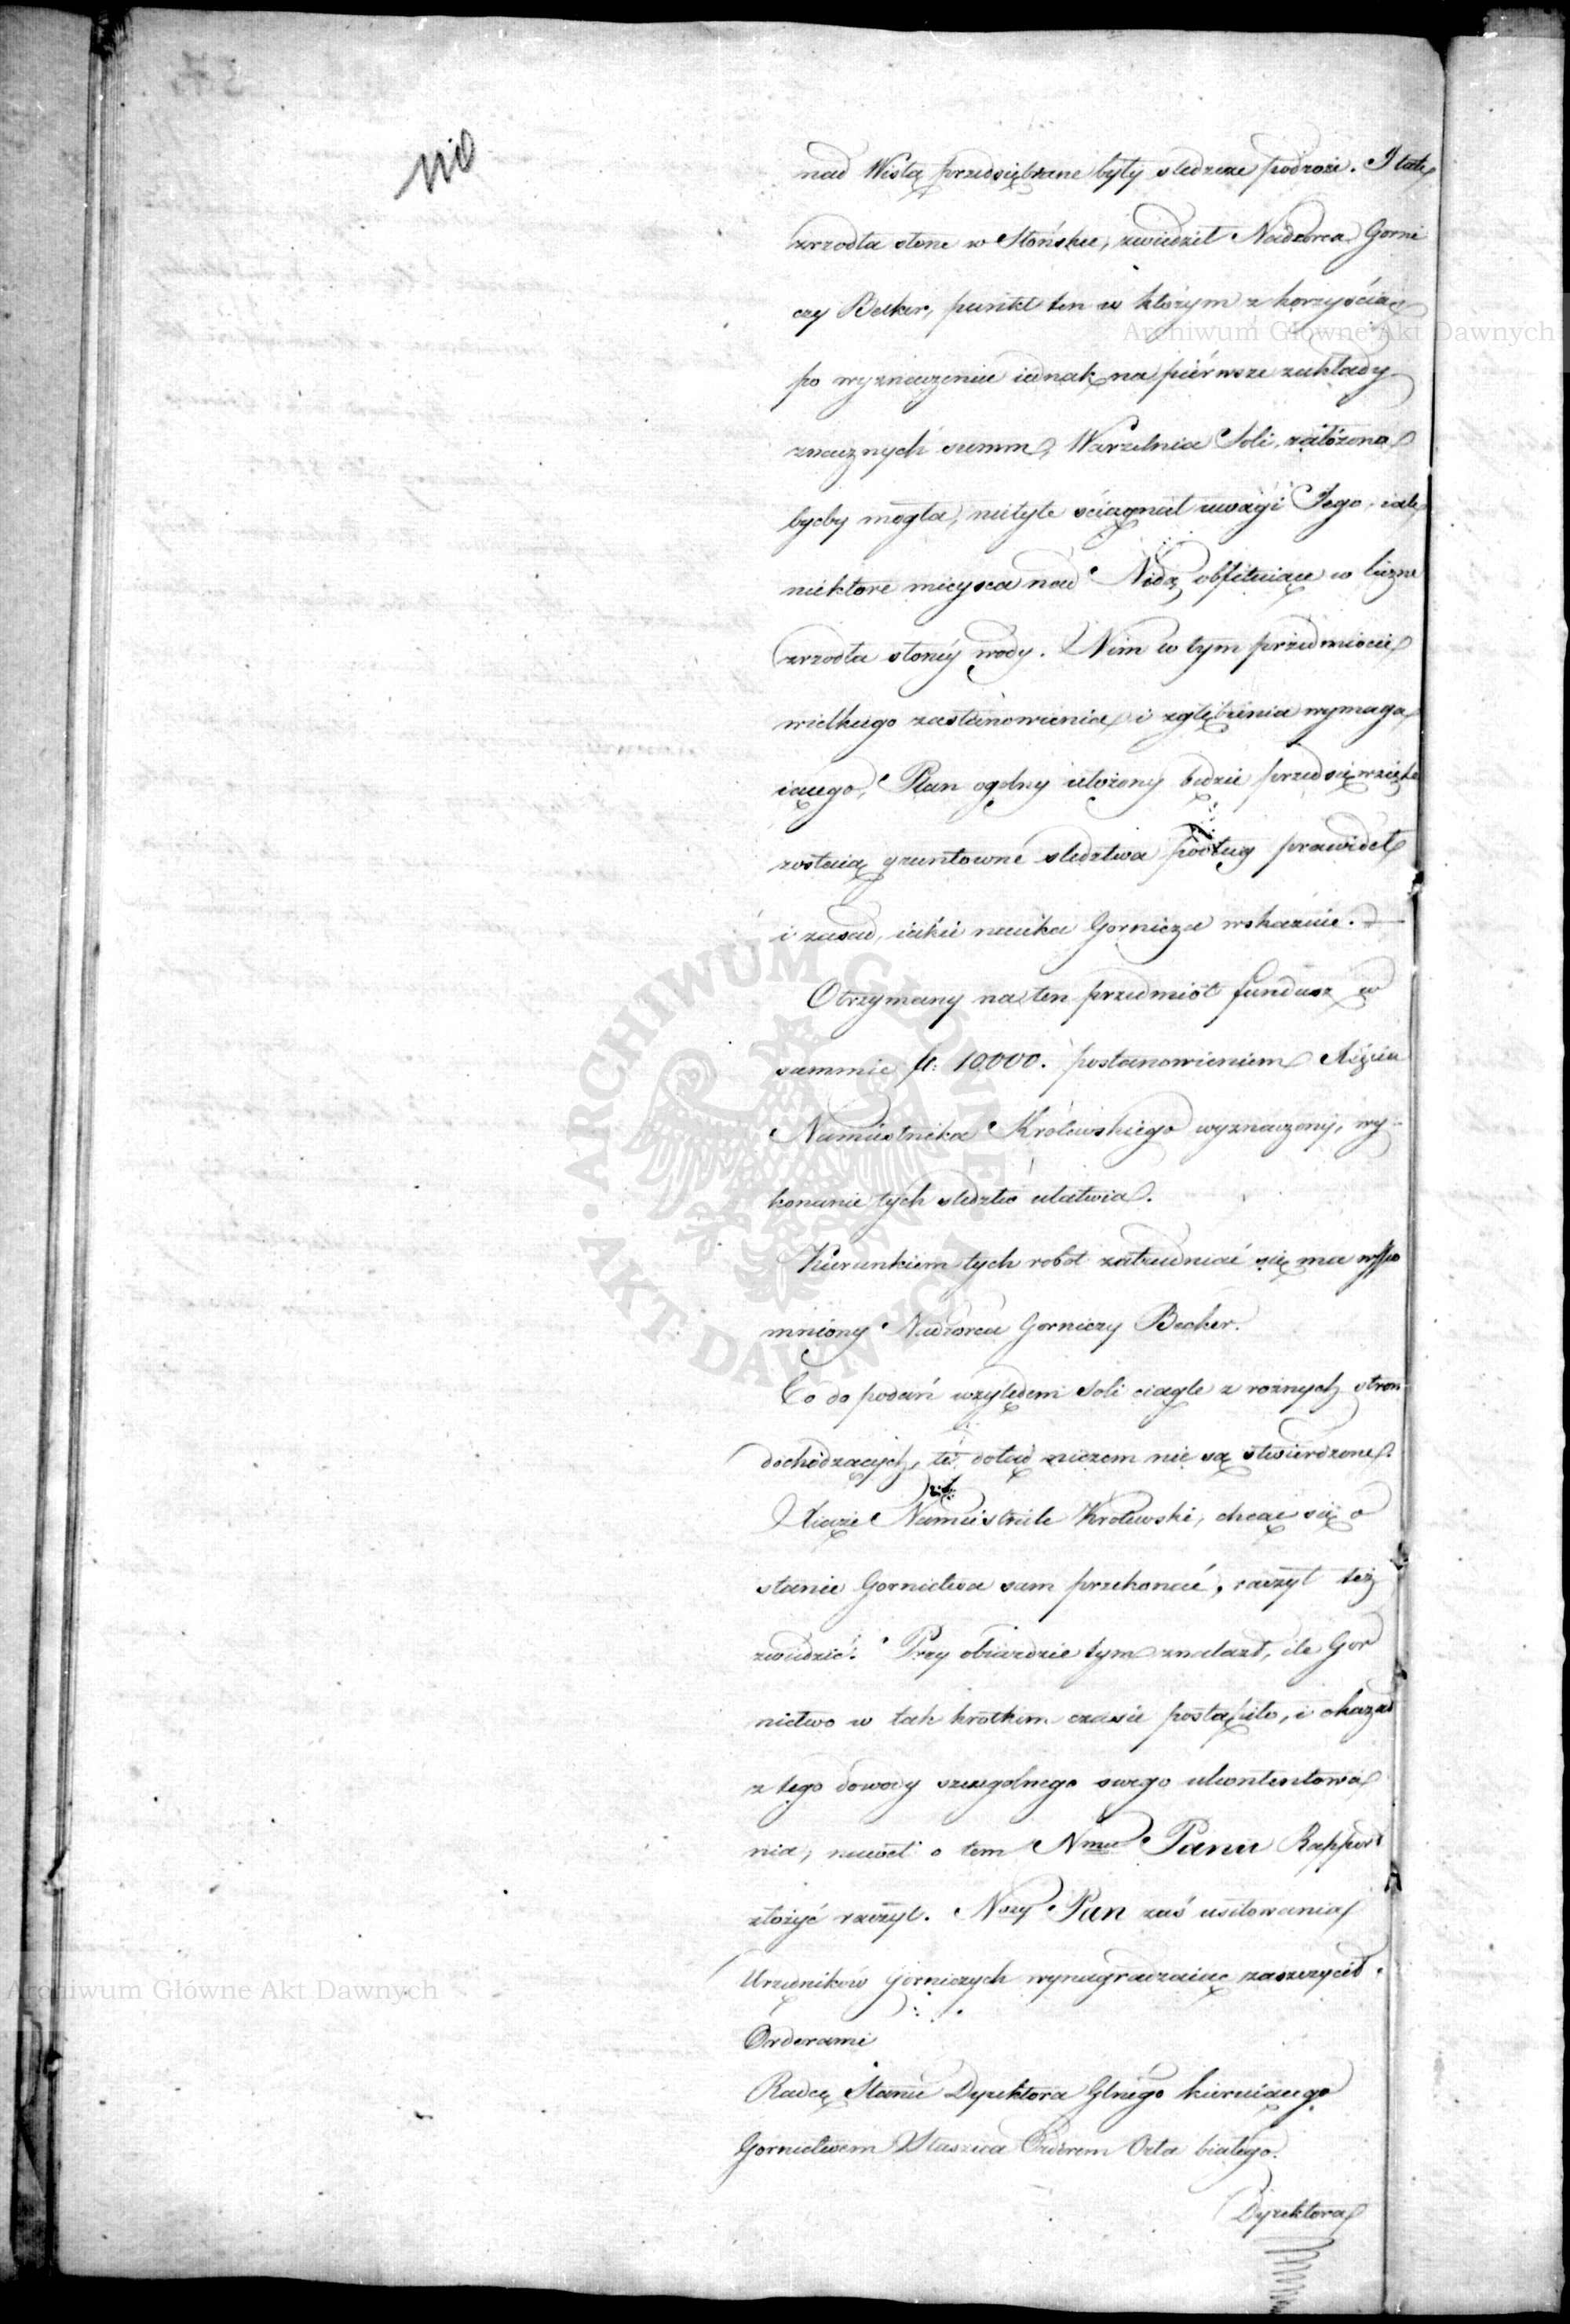 nad Wisłą przedsiębrane były sledcze podróże. I tak
zrzodła słone w Słońsku, zwiedził Nadzorca Gorni
czy Becker, punkt ten w którym z korzyścią
po wyznaczeniu iednak na piérwsze zakłady
znacznych summ, Warzelnia Soli założona
bydby mogła, nietyle ściągnął uwagi Jego, iak
niektore mieysca nad Nidą obfituiące w liczne
zrzodła słonéy wody. Nim w tym przedmiocie
wielkiego zastanowienia i zgłębienia wymaga
iącego, Plan ogolny ułożony będzie przedsięwzięte
zostaią gruntowne sledztwa podług prawideł
i zasad, iakie nauka Gornicza wskazuie.
Otrzymany na ten przedmiot fundusz w
summie fl: 10.000. postanowieniem Xięcia
Namiestnika Królewskiego wyznaczony, wy-
konanie tych sledztw ułatwia.
Kierunkiem tych robot zatrudniać się ma wspo
mniony Nadzorca Gorniczy Becker.
Co do podań względem Soli ciągle z rożnych stron
dochodzących, te dotąd niczem nie są stwierdzone.
Xiąże Namiestnik Krolewski, chcąc się o
stanie Gornictwa sam przekonać, raczył też
zwiedzić. Przy obiezdzie tym znalazł, ile Gor
nictwo w tak krotkim czasie postąpiło, i okazał
z tego dowody szczegolnego swego ukontentowa
nia, nawet o tem Nmu Panu Rapport
złożyć raczył. Nszy Pan zaś usiłowania
Urzędników górniczych wynagradzaiąc zaszczycił
Orderami
Radcę Stanu Dyrektora Glnego kieruiącego
Gornictwem Staszica Orderem Orła białego.
Dyrektora
Archiwum Główne Akt Dawnych
Archiwum Główne Akt Dawnych
ARCHIWUM GŁÓWNE AKT DAWNYCH